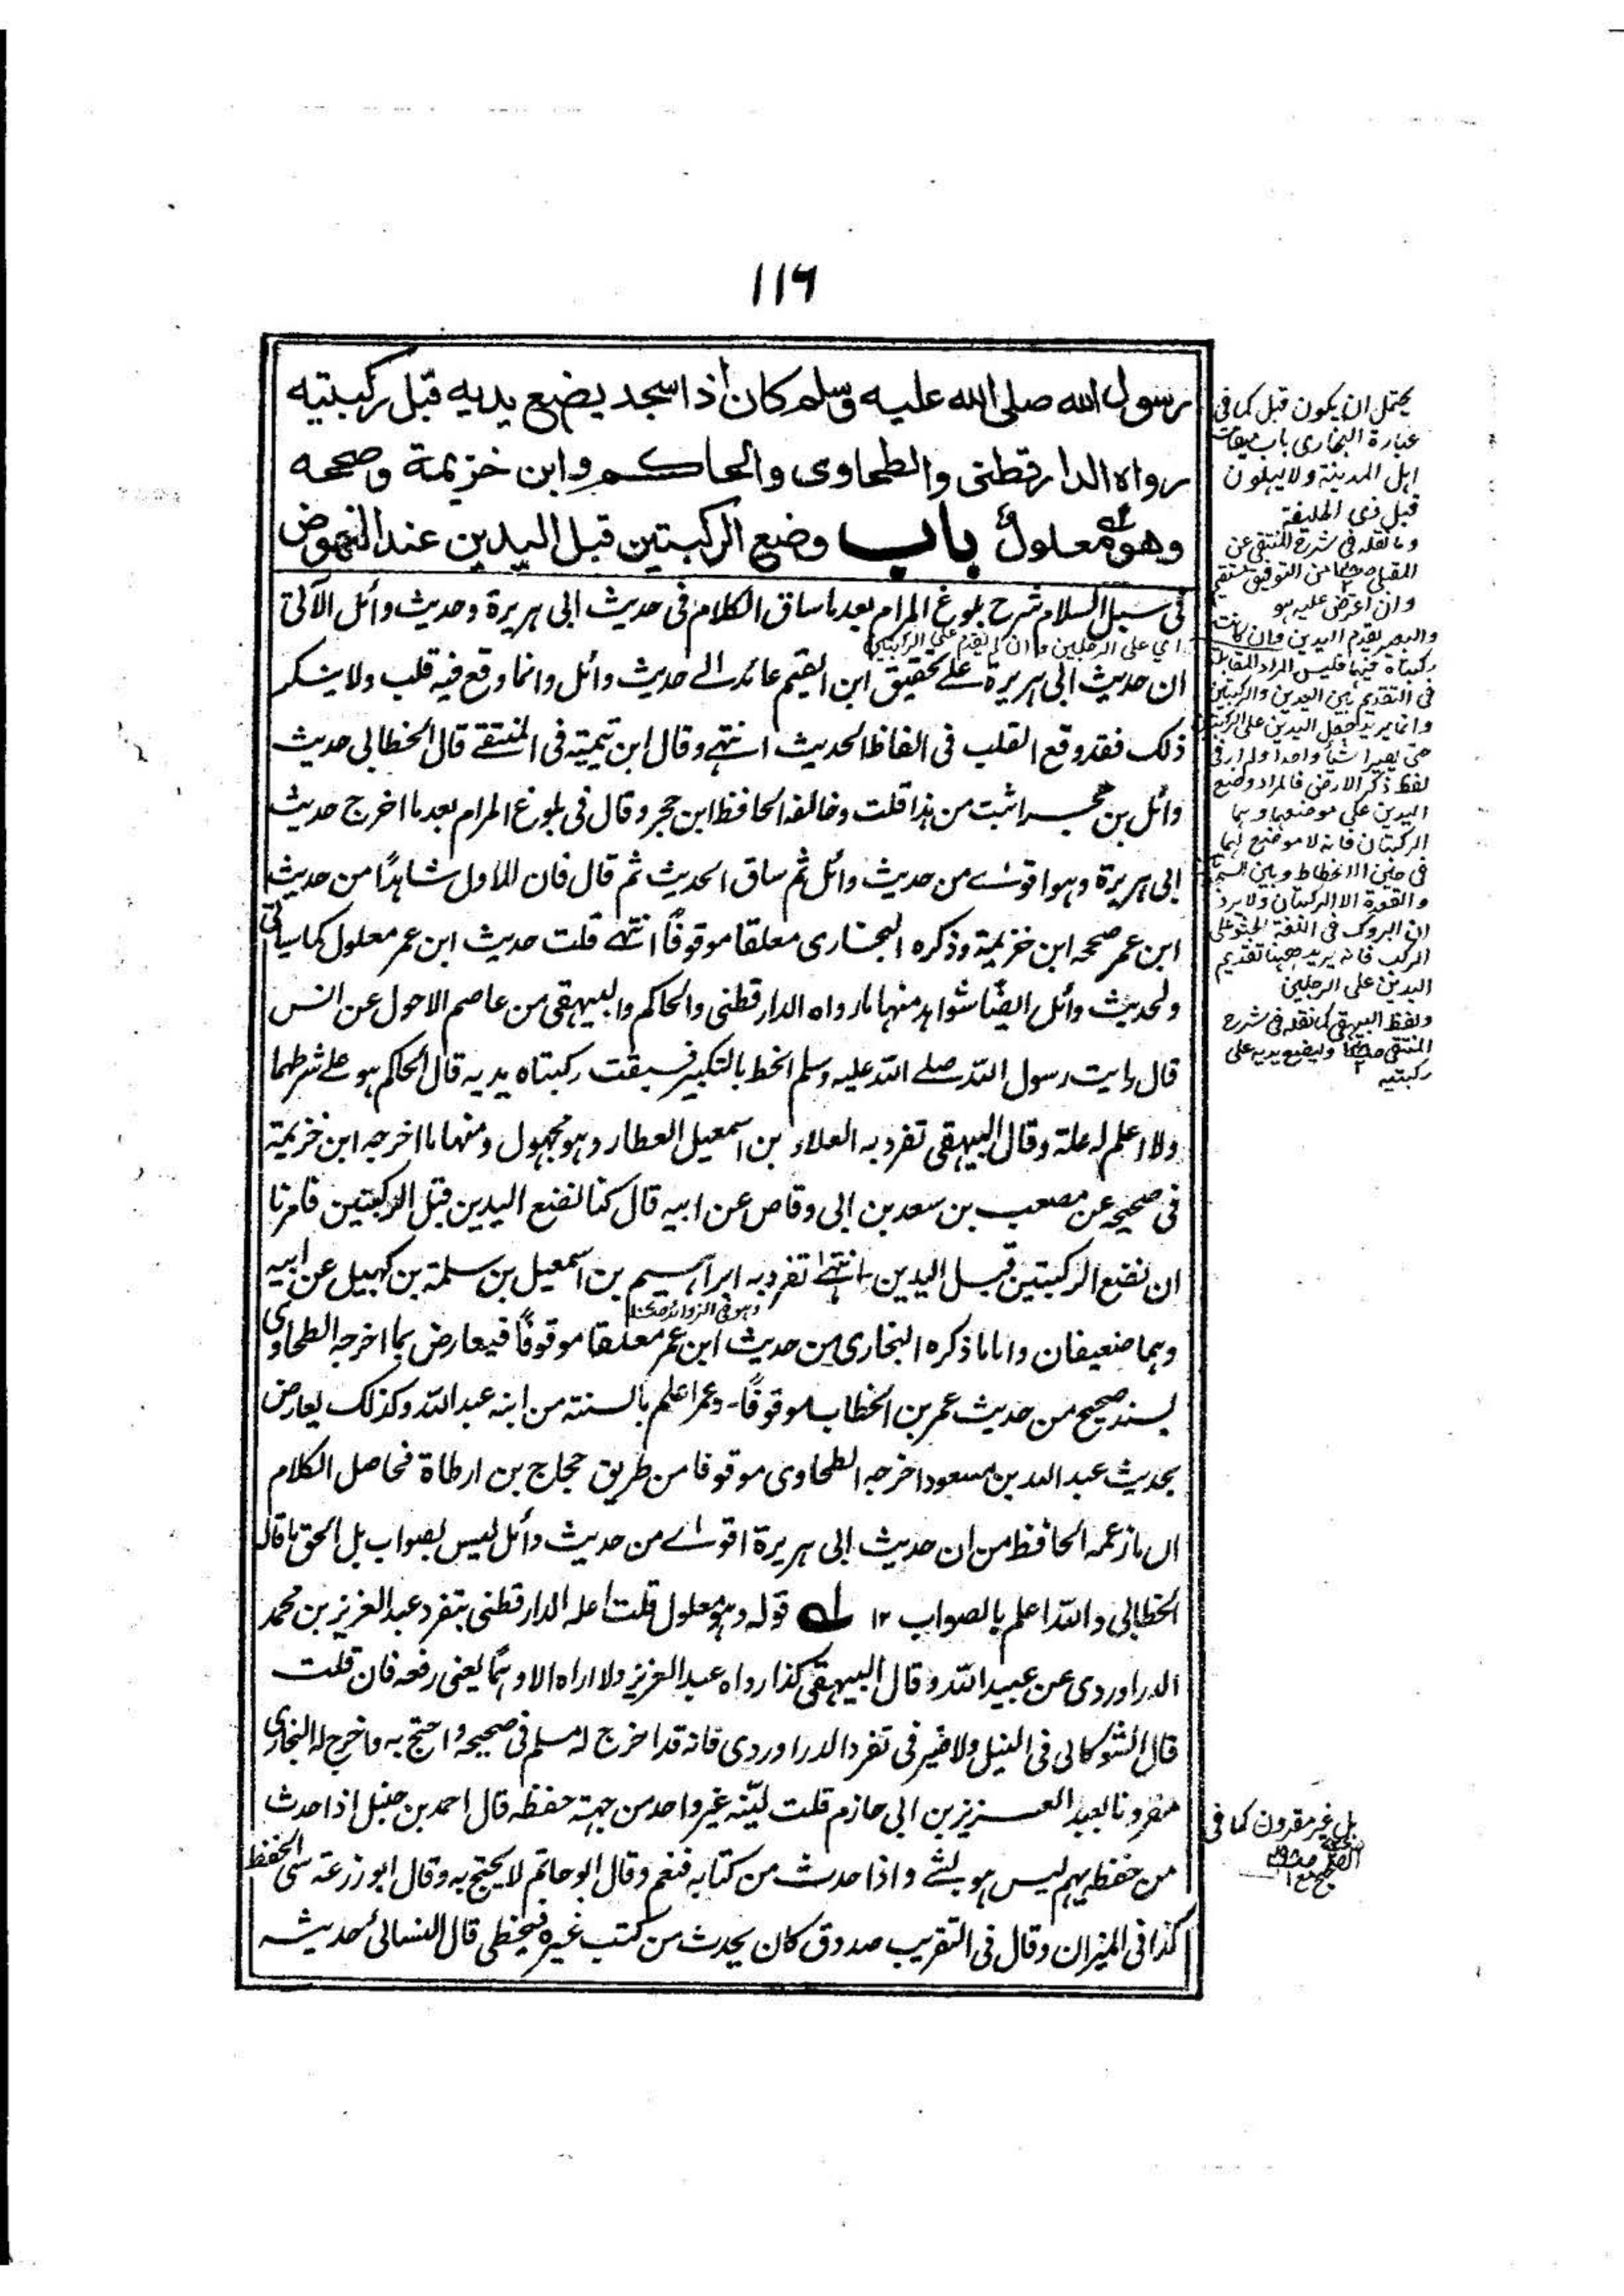 ١١٦
رسول الله صلى الله عليه وسلم كان اذا سجد يضع يديه قبل ركبتيه
رواه الدارقطنى والطحاوى والحاكم وابن خزيمة وصححه
وهو معلول باب وضع الركبتين قبل اليدين عند النهوض
فى سبل السلام شرح بلوغ المرام بعد ما ساق الكلام فى حديث ابى هريرة وحديث وائل الآتى
اي على الرجلين وان لم يقدم على الركبتين
ان حديث ابى هريرة على تحقيق ابن القيم عائد الى حديث وائل وانما وقع فيه قلب ولا ينكر
ذلك فقد وقع القلب فى الفاظ الحديث انتهى وقال ابن تيمية فى المنتقى قال الخطابى حديث
وائل بن حجر اثبت من هذا قلت وخالفه الحافظ ابن حجر وقال فى بلوغ المرام بعد ما اخرج حديث
ابى هريرة وهو اقوى من حديث وائل ثم ساق الحديث ثم قال فان للاول شاهدًا من حديث
ابن عمر صححه ابن خزيمة وذكره البخارى معلقا موقوفًا انتهى قلت حديث ابن عمر معلول كما سيأتى
ولحديث وائل ايضًا شواهد منها ما رواه الدارقطنى والحاكم والبيهقى من عاصم الاحول عن انس
قال رايت رسول الله صلى الله عليه وسلم انحط بالتكبير فسبقت ركبتاه يديه قال الحاكم هو على شرطهما
ولا اعلم له علة وقال البيهقى تفرد به العلاء بن اسمعيل العطار وهو مجهول ومنها ما اخرجه ابن خزيمة
فى صحيحه عن مصعب بن سعد بن ابى وقاص عن ابيه قال كنا نضع اليدين قبل الركبتين فامرنا
ان نضع الركبتين قبل اليدين انتهى تفرد به ابراهيم بن اسمعيل بن سلمة بن كهيل عن ابيه
وهو فى الزوائد
وهما ضعيفان واما ما ذكره البخارى من حديث ابن عمر معلقا موقوفًا فيعارض بما اخرجه الطحاوى
بسند صحيح من حديث عمر بن الخطاب موقوفًا - وعمر اعلم بالسنة من ابنه عبد الله وكذلك يعارض
بحديث عبد الله بن مسعود اخرجه الطحاوى موقوفا من طريق حجاج بن ارطاة فحاصل الكلام
ان ما زعمه الحافظ من ان حديث ابى هريرة اقوى من حديث وائل ليس بصواب بل الحق ما قاله
الخطابى والله اعلم بالصواب ١٢ له قوله وهو معلول قلت اعله الدارقطنى بتفرد عبد العزيز بن محمد
الدراوردى عن عبيد الله وقال البيهقى كذا رواه عبد العزيز ولا اراه الا وهمًا يعنى رفعه فان قلت
قال الشوكانى فى النيل ولا ضير فى تفرد الدراوردى فانه قد اخرج له مسلم فى صحيحه واحتج به واخرج له البخارى
مقرونا بعبد العزيز بن ابى حازم قلت ليّنه غير واحد من جهة حفظه قال احمد بن حنبل اذا حدث
من حفظه يهم ليس هو بشئ واذا حدث من كتابه فنعم وقال ابو حاتم لا يحتج به وقال ابو زرعة سئ الحفظ
كذا فى الميزان وقال فى التقريب صدوق كان يحدث من كتب غيره فيخطى قال النسائى حديثه
يحتمل ان يكون قبل كما فى
عبارة البخارى باب ميقات
اهل المدينة ولا يهلون
قبل ذى الحليفة
وما نقله فى شرح المنتقى عن
المقبلى من التوفيق
وان اعترض عليه هو
والبعير يقدم اليدين وان كانت
ركبتاه فيهما فليس المراد المقابلة
فى التقديم بين اليدين والركبتين
وانما يريد جعل اليدين على الركبتين
حتى يصيرا شيأ واحدا ولم ار فى
لفظ ذكر الارض فالمراد وضع
اليدين على موضعهما وهما
الركبتان فانه لا موضع لهما
فى حين الانحطاط وبين
والقعدة الا الركبتان ولا يرد
ان البروك فى اللغة الجثو على
الركب فانه يريد ههنا تقديم
اليدين على الرجلين
ولفظ البيهقى كما نقله فى شرح
المنتقى وليضع يديه على
ركبتيه
بل غير مقرون كما فى